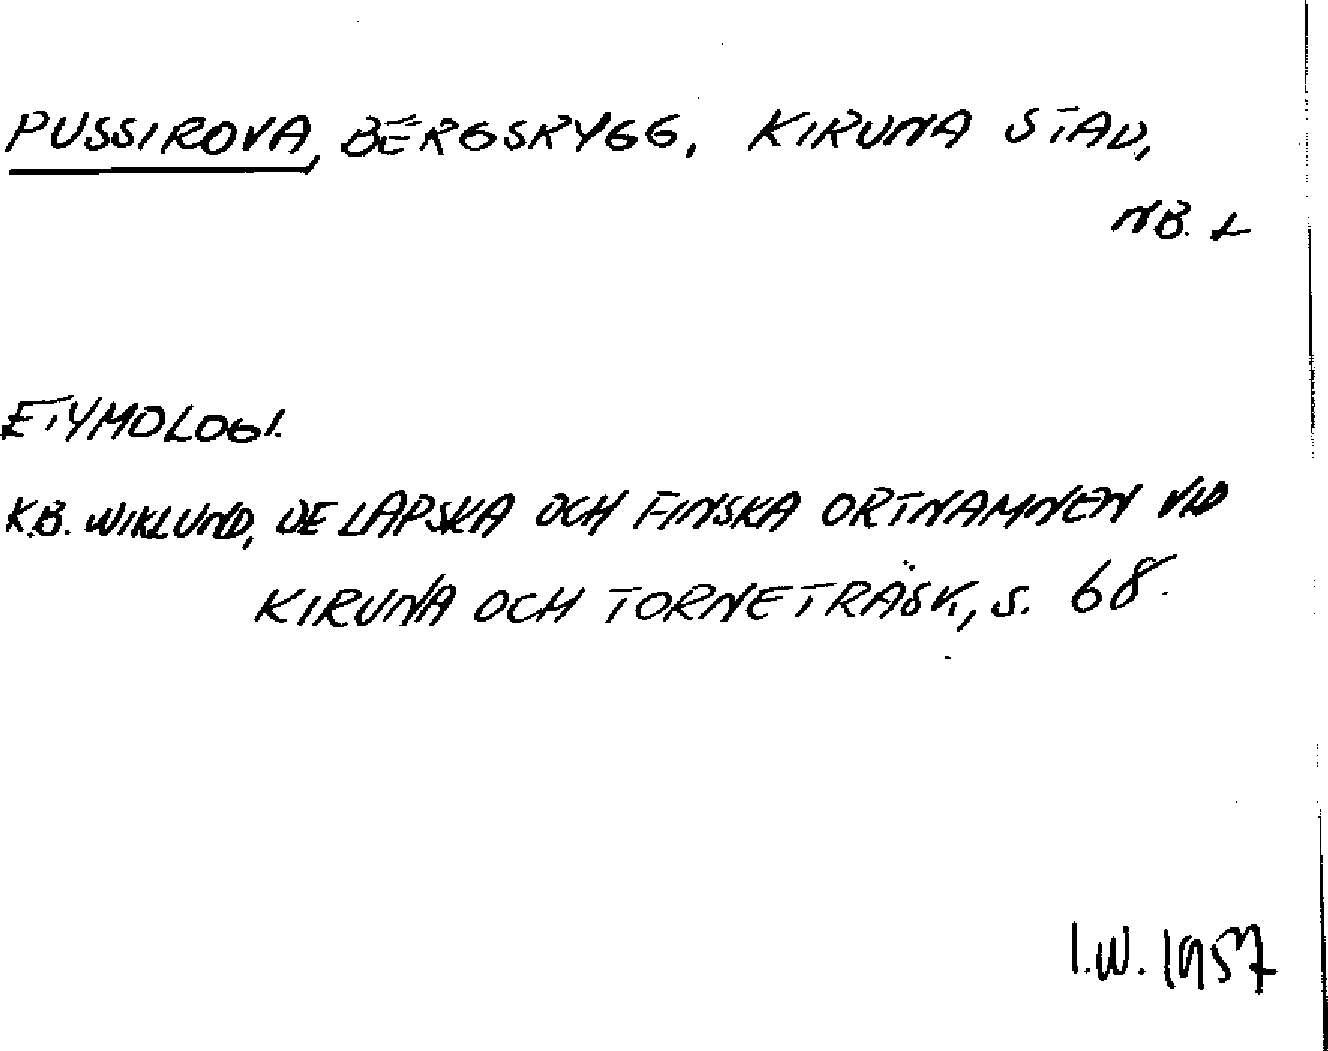 PUSSIROVA, BERGSRYGG, KIRUNA STAD,
NB. L
ETYMOLOGI.
K.B. WIKLUND, DE LAPSKA OCH FINSKA ORTNAMNEN VID
KIRUNA OCH TORNETRÄSK, S. 68.
I.W. 1957